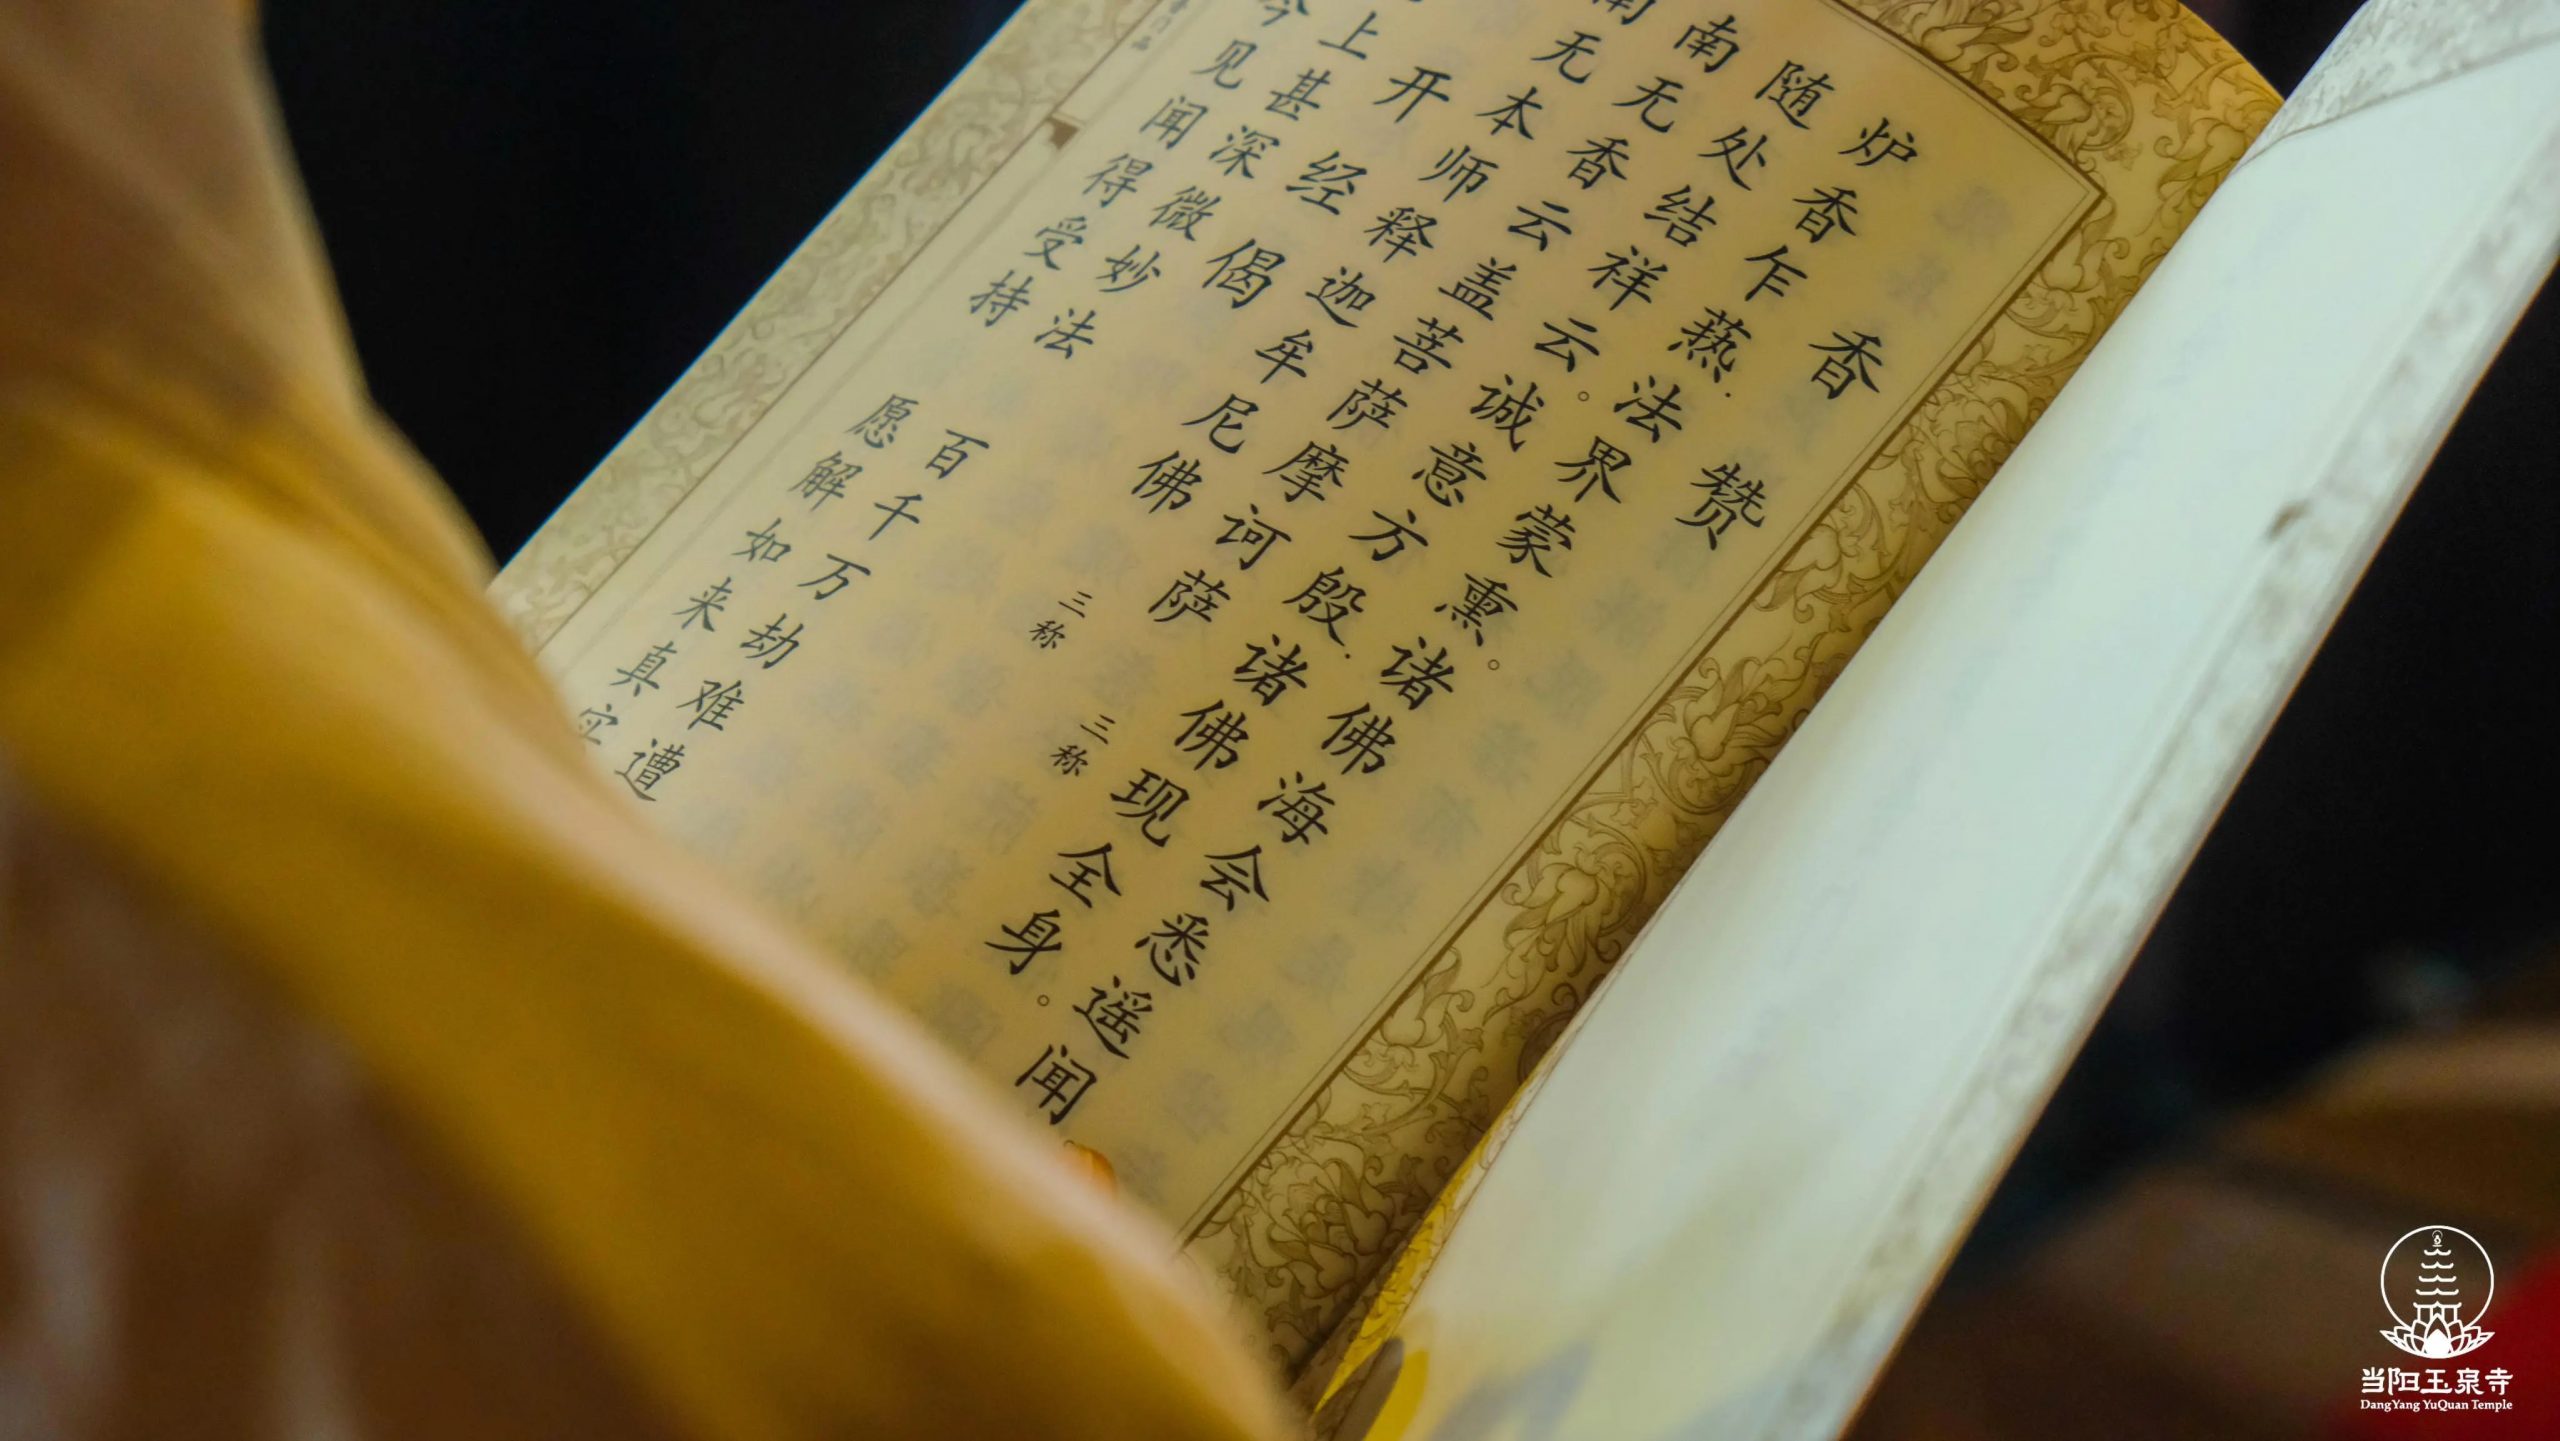 香赞
炉香乍爇.法界蒙熏。诸佛海会悉遥闻
随处结祥云。诚意方殷.诸佛现全身。
南无香云盖菩萨摩诃萨 三称
南无本师释迦牟尼佛 三称
开经偈
上甚深微妙法 百千万劫难遭
今见闻得受持 愿解如来真实
门品
当阳玉泉寺
DangYang YuQuan Temple